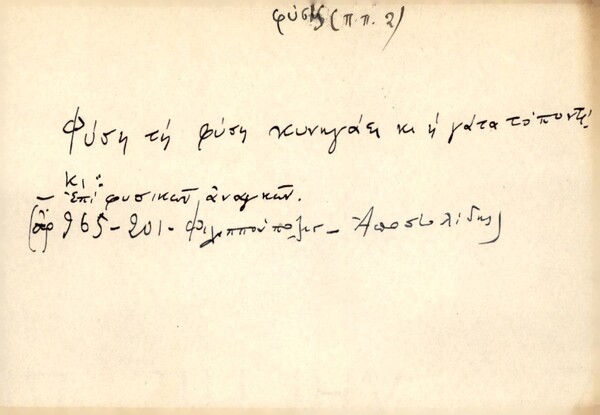 φύσις (π.π. 2)
Φύση τή φύση κυνηγάει κι ἡ γάτα τό ποντί.
κι:
– ἐπί φυσικῶν ἀναγκῶν.
(ἀρ 965-201- Φιλιππούπολις – Ἀποστολίδης)